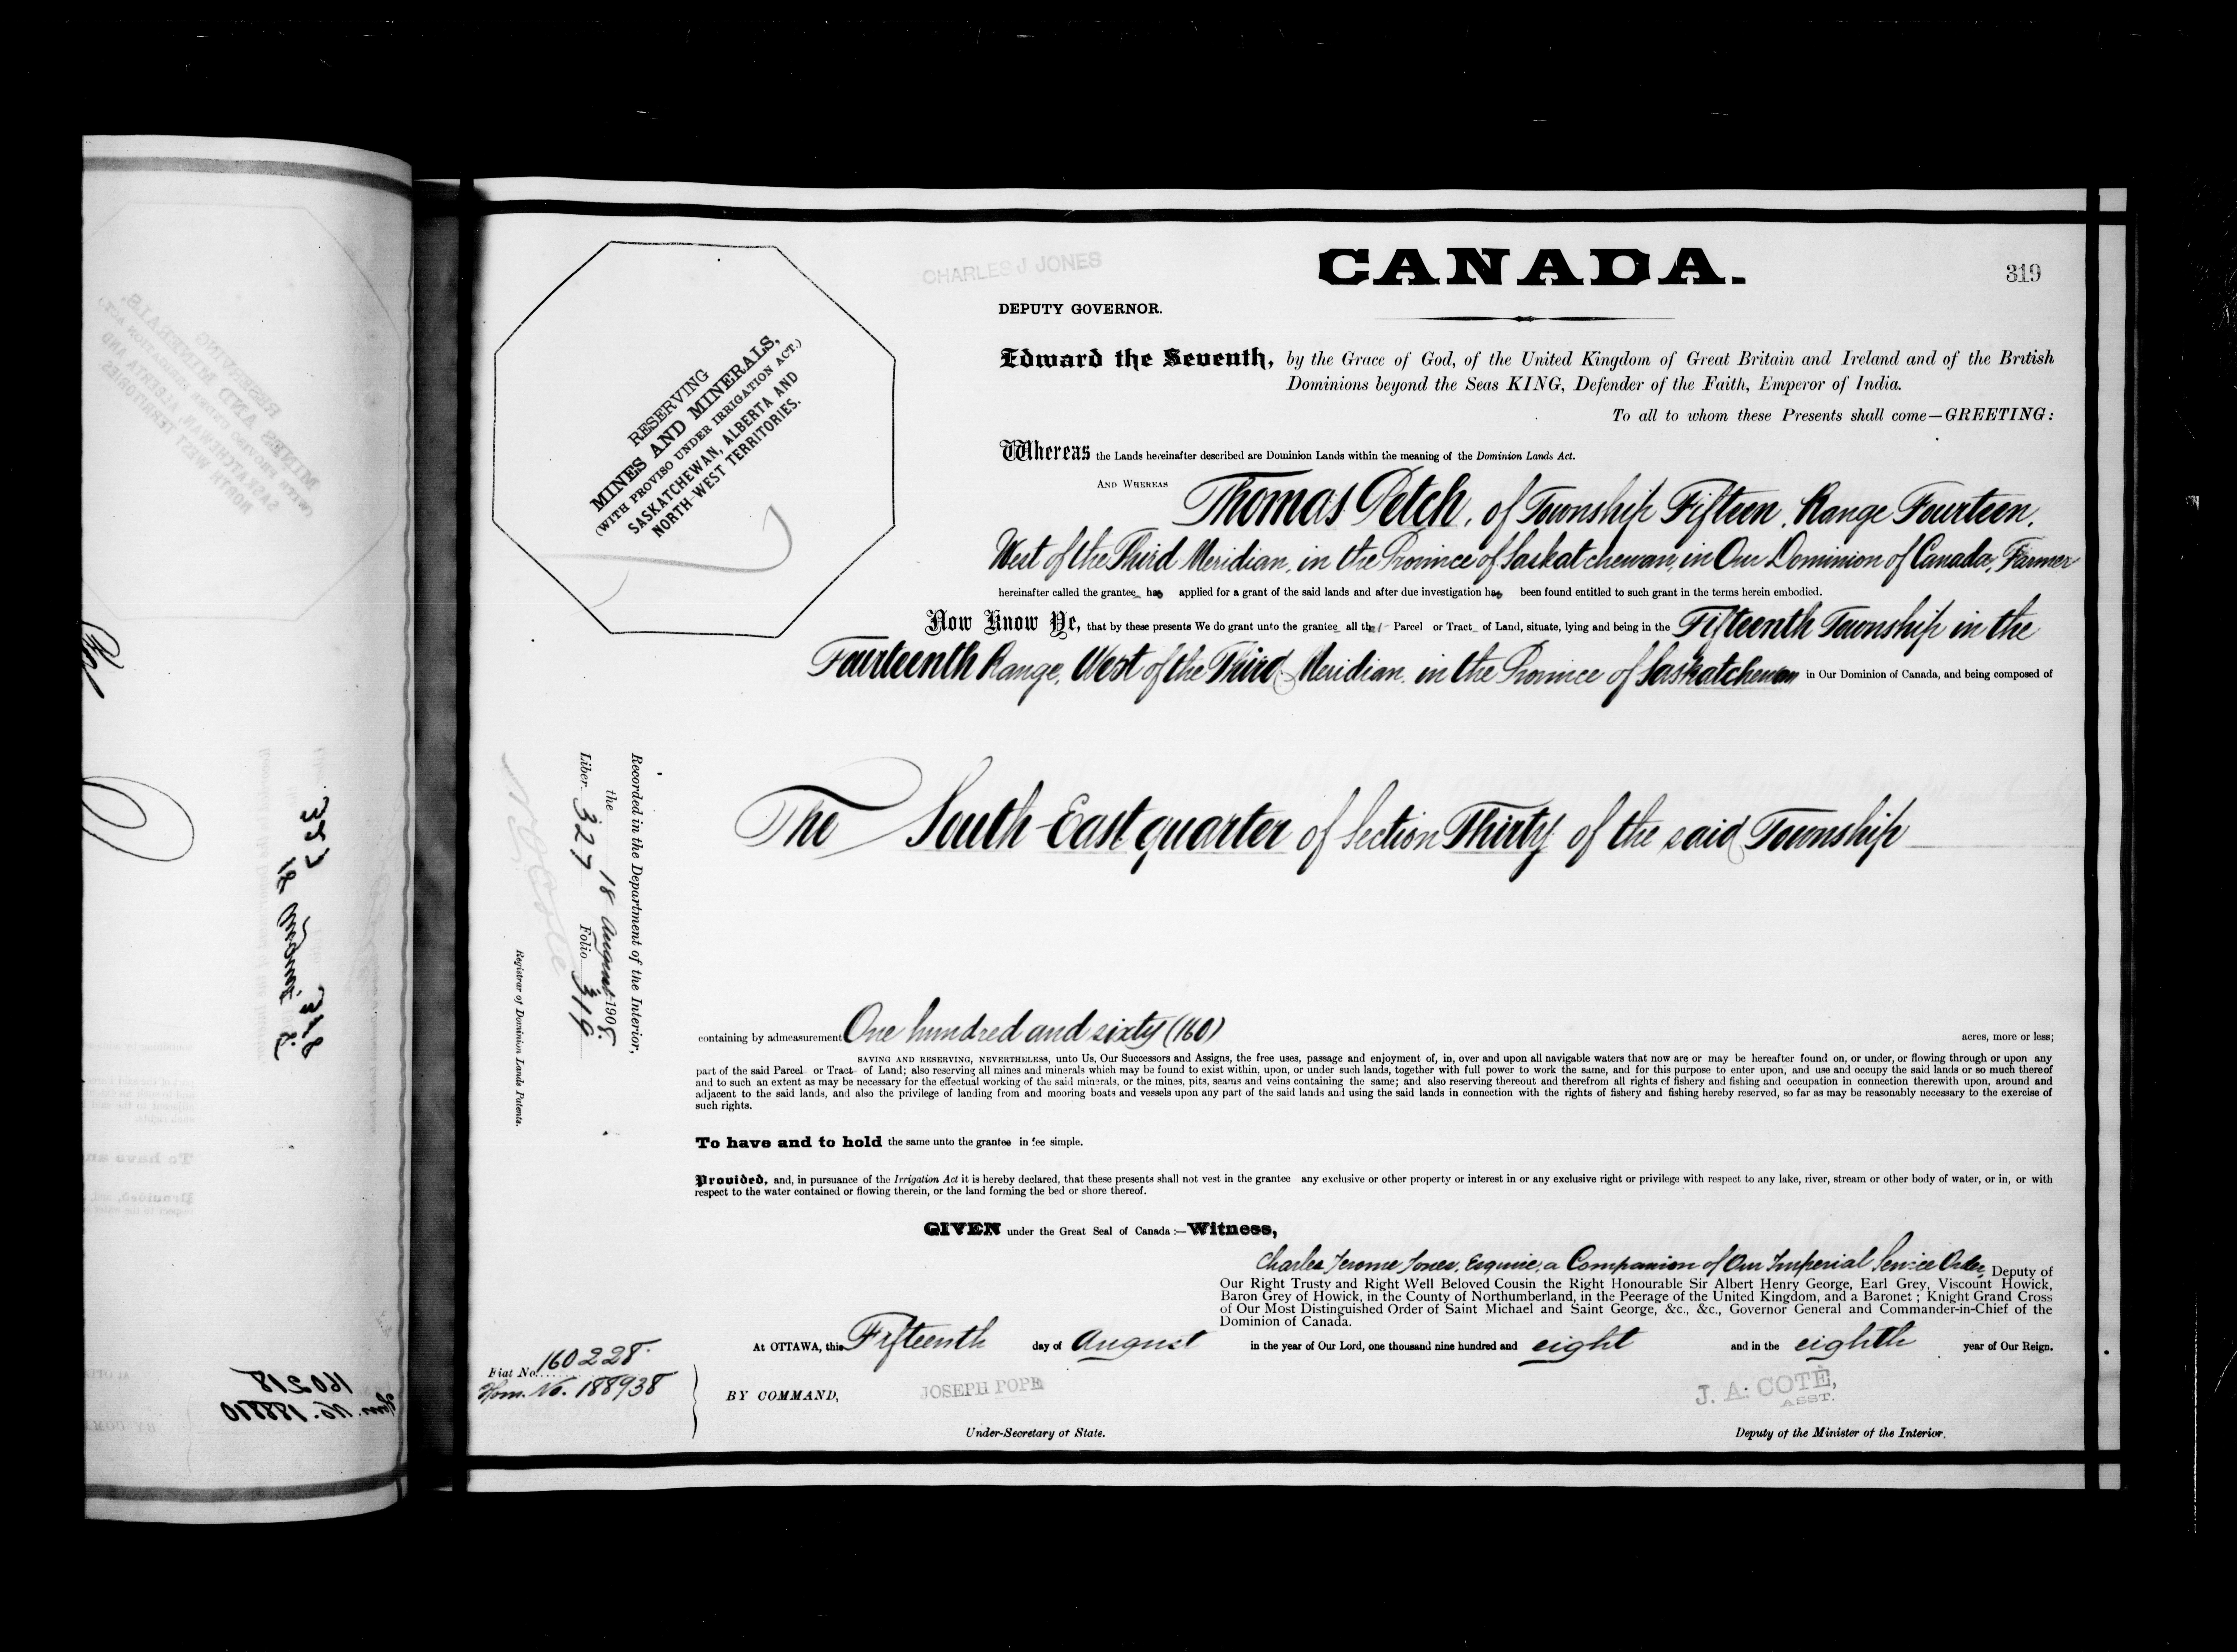 CHARLES J JONES
CANADA.
319
DEPUTY GOVERNOR.
RESERVING
MINES AND MINERALS,
(WITH PROVISO UNDER IRRIGATION ACT.)
SASKATCHEWAN, ALBERTA AND
NORTH-WEST TERRITORIES.
Edward the Seventh, by the Grace of God, of the United Kingdom of Great Britain and Ireland and of the British
Dominions beyond the Seas KING, Defender of the Faith, Emperor of India.
To all to whom these Presents shall come—GREETING:
Whereas the Lands hereinafter described are Dominion Lands within the meaning of the Dominion Lands Act.
AND WHEREAS Thomas Petch, of Township Fifteen, Range Fourteen,
West of the Third Meridian, in the Province of Saskatchewan, in Our Dominion of Canada, Farmer
hereinafter called the grantee has applied for a grant of the said lands and after due investigation has been found entitled to such grant in the terms herein embodied.
Now Know Ye, that by these presents We do grant unto the grantee all that Parcel or Tract of Land, situate, lying and being in the Fifteenth Township in the
Fourteenth Range, West of the Third Meridian, in the Province of Saskatchewan in Our Dominion of Canada, and being composed of
The South-East quarter of Section Thirty of the said Township
Recorded in the Department of the Interior,
the 18 August 1908.
Liber 327 Folio 319
Registrar of Dominion Lands Patents.
containing by admeasurement One hundred and sixty (160) acres, more or less;
SAVING AND RESERVING, NEVERTHELESS, unto Us, Our Successors and Assigns, the free uses, passage and enjoyment of, in, over and upon all navigable waters that now are or may be hereafter found on, or under, or flowing through or upon any
part of the said Parcel or Tract of Land; also reserving all mines and minerals which may be found to exist within, upon, or under such lands, together with full power to work the same, and for this purpose to enter upon, and use and occupy the said lands or so much thereof
and to such an extent as may be necessary for the effectual working of the said minerals, or the mines, pits, seams and veins containing the same; and also reserving thereout and therefrom all rights of fishery and fishing and occupation in connection therewith upon, around and
adjacent to the said lands, and also the privilege of landing from and mooring boats and vessels upon any part of the said lands and using the said lands in connection with the rights of fishery and fishing hereby reserved, so far as may be reasonably necessary to the exercise of
such rights.
To have and to hold the same unto the grantee in fee simple.
Provided, and, in pursuance of the Irrigation Act it is hereby declared, that these presents shall not vest in the grantee any exclusive or other property or interest in or any exclusive right or privilege with respect to any lake, river, stream or other body of water, or in, or with
respect to the water contained or flowing therein, or the land forming the bed or shore thereof.
GIVEN under the Great Seal of Canada:—Witness,
Charles Jerome Jones, Esquire, a Companion of Our Imperial Service Order, Deputy of
Our Right Trusty and Right Well Beloved Cousin the Right Honourable Sir Albert Henry George, Earl Grey, Viscount Howick,
Baron Grey of Howick, in the County of Northumberland, in the Peerage of the United Kingdom, and a Baronet; Knight Grand Cross
of Our Most Distinguished Order of Saint Michael and Saint George, &c., &c., Governor General and Commander-in-Chief of the
Dominion of Canada.
At OTTAWA, this Fifteenth day of August in the year of Our Lord, one thousand nine hundred and eight and in the eighth year of Our Reign.
Fiat No. 160228.
Hom. No. 188938
BY COMMAND,
JOSEPH POPE
J. A. COTÉ,
ASST.
Under-Secretary of State.
Deputy of the Minister of the Interior.